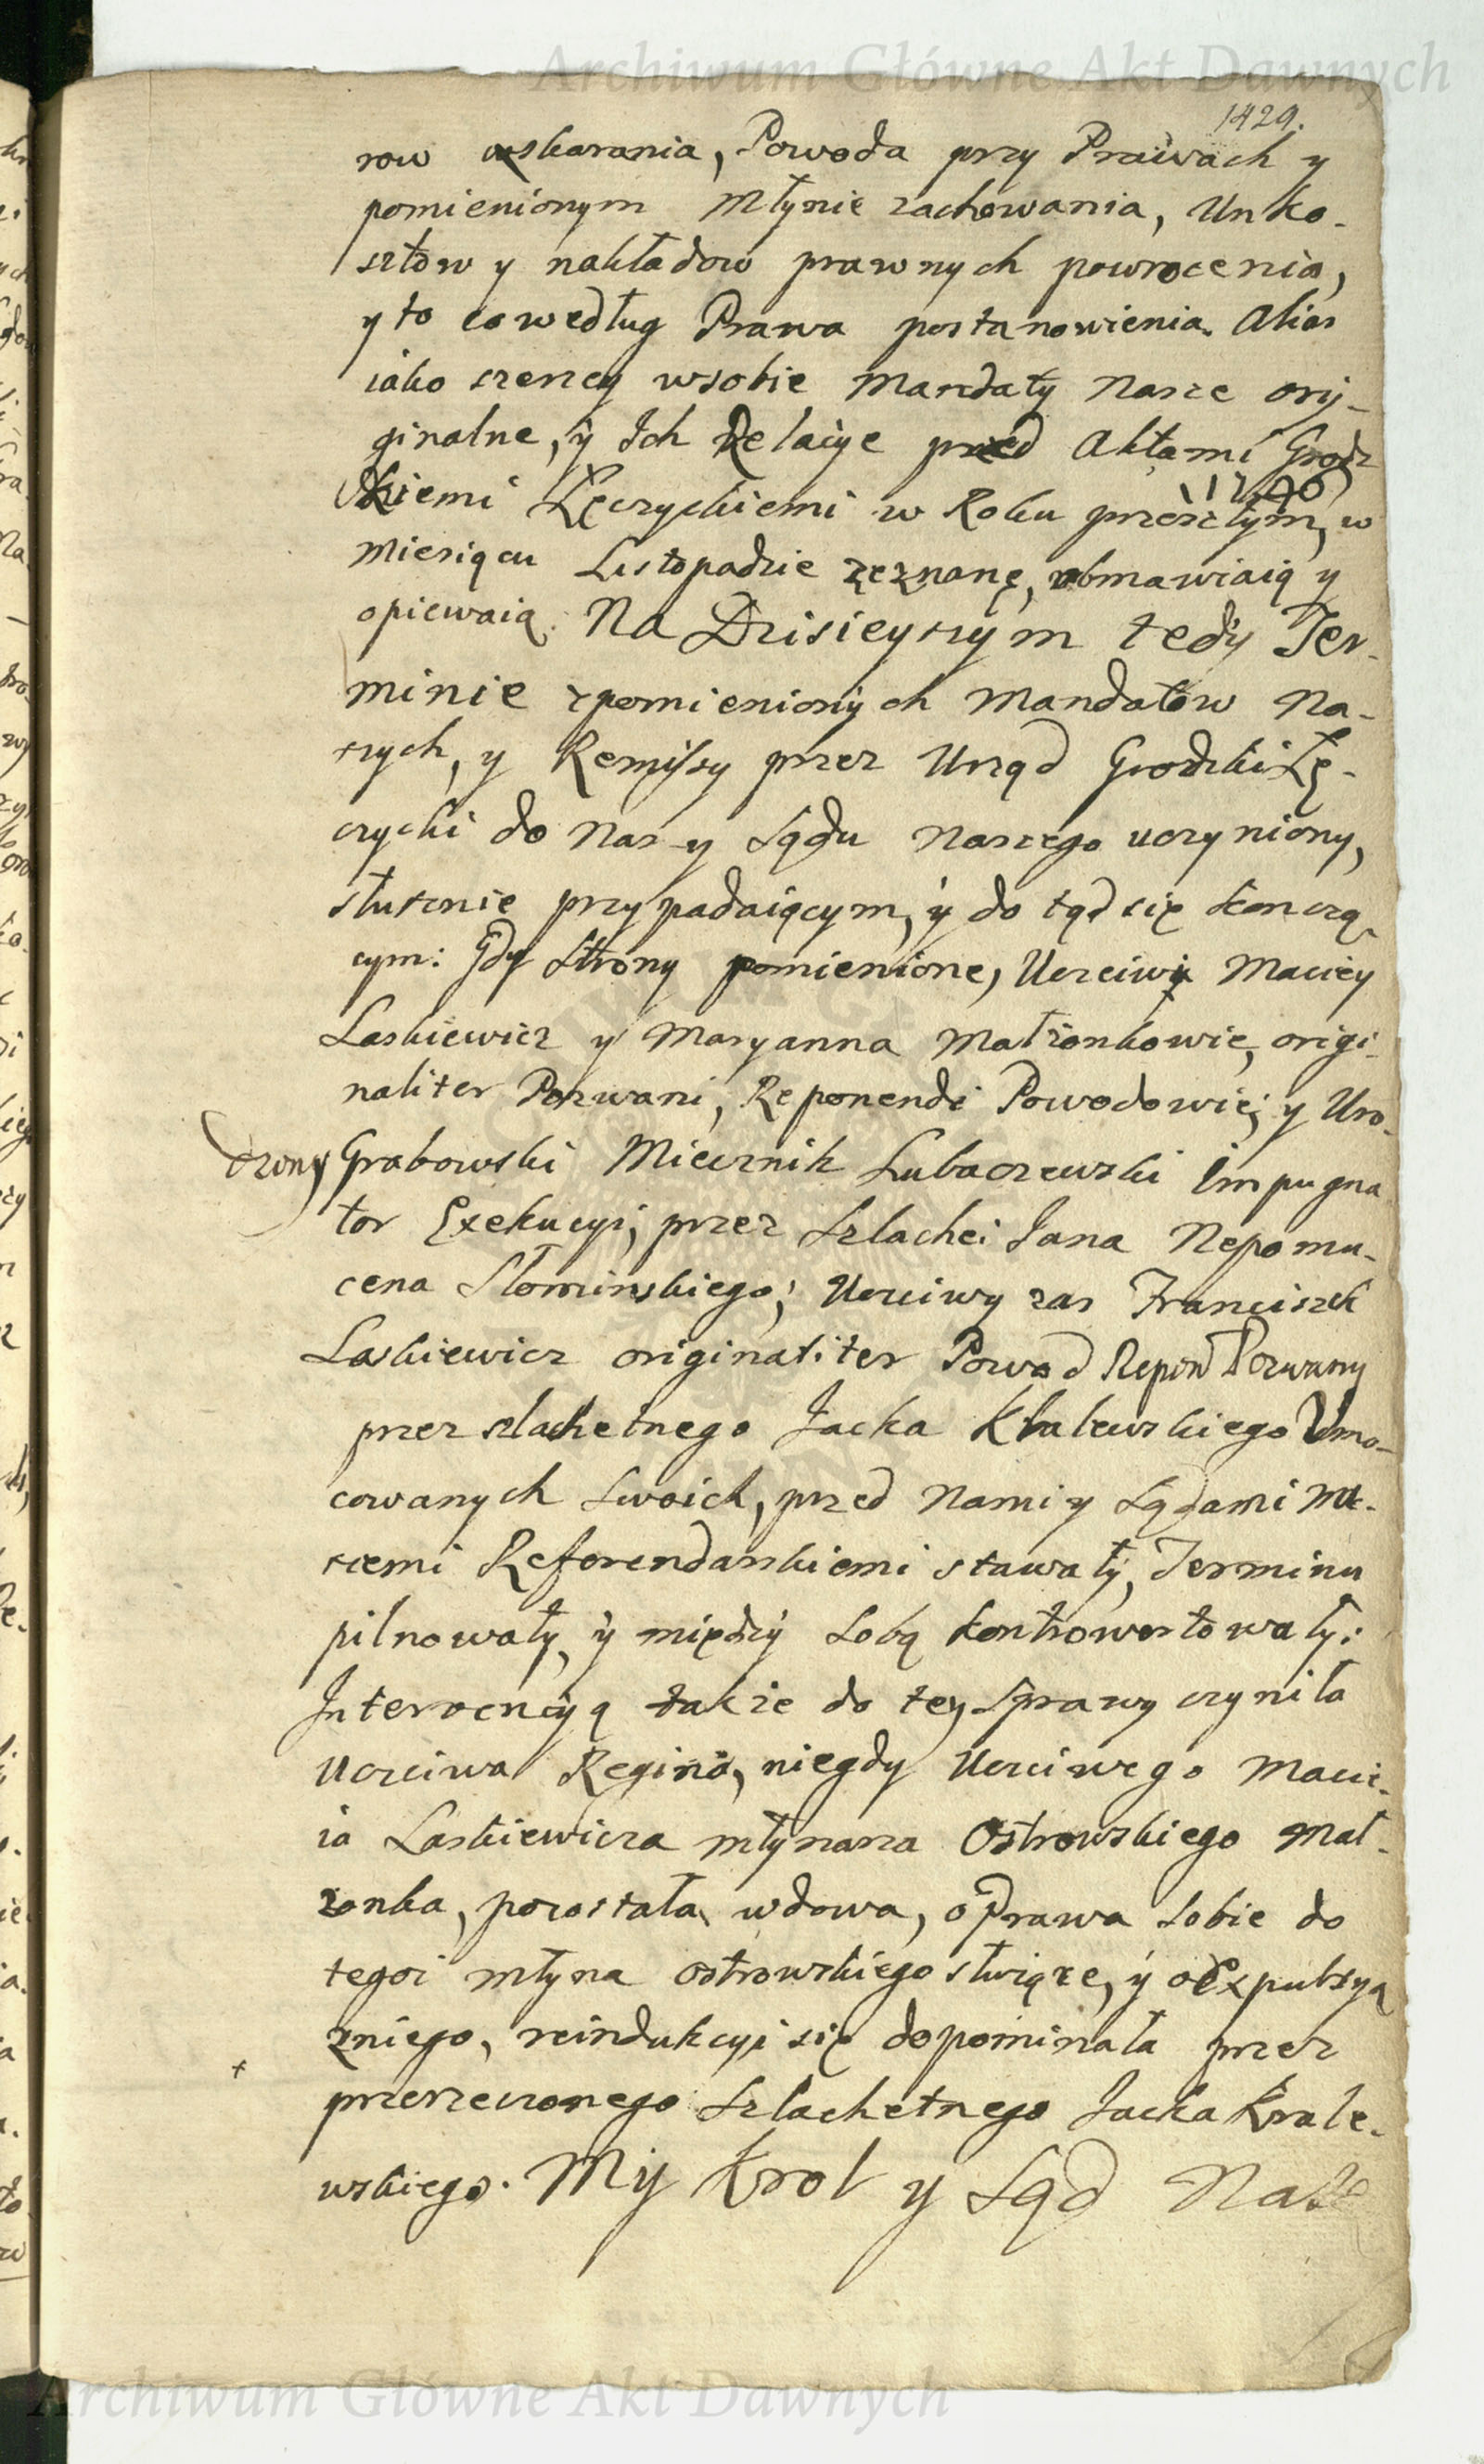 Archiwum Główne Akt Dawnych
1429.
row wskarania, Powoda przy Prawach y
pomienionym Młynie zachowania, Unko-
sztow y nakładow prawnych powrocenia,
y to co według Prawa postanowienia. Alias
iako szerzey wsobie Mandaty Nasze ory-
ginalne, y Ich Relacye przed Aktami Grodz
kiemi Łęczyckiemi w Roku przeszłym, w
Miesiącu Listopadzie zeznane, obmawiaią y
opiewaią. Na Dzisieyszym tedy Ter-
minie zpomienionych Mandatow Na-
szych, y Remissy przez Urząd Grodzki Łę-
czycki do Nas y Sądu Naszego uczyniony,
słusznie przypadaiącym, y do tąd się konczą-
cym: Gdy Strony pomienione, Uczciwi Maciey
Laskiewicz y Maryanna Małżonkowie, origi-
naliter Pozwani, Reponendi Powodowie; y Uro-
dzony Grabowski Miecznik Lubaczewski Impugna
tor Exekucyi, przez Szlachci Jana Nepomu-
cena Słominskiego; Uczciwy zas Franciszek
Laskiewicz originaliter Powod Repon Pozwany
przez szlachetnego Jacka Kralewskiego Umo-
cowanych Swoich, przed Nami y Sądami Na-
szemi Referendarskiemi stawały, Terminu
pilnowały, y między Sobą kontrowertowały:
Interwencyą także do tey Sprawy czyniła
Uczciwa Regina, niegdy Uczciwego Macie-
ia Laskiewicza młynarza Ostrowskiego Mał-
zonka, pozostała wdowa, o Prawa Sobie do
tegoż młyna ostrowskiego służące, y o Expulsyą
zniego, reindukcyi się dopominała przez
przerzeczonego Szlachetnego Jacka Krale-
wskiego. My Krol y Sąd Nasz
Archiwum Główne Akt Dawnych